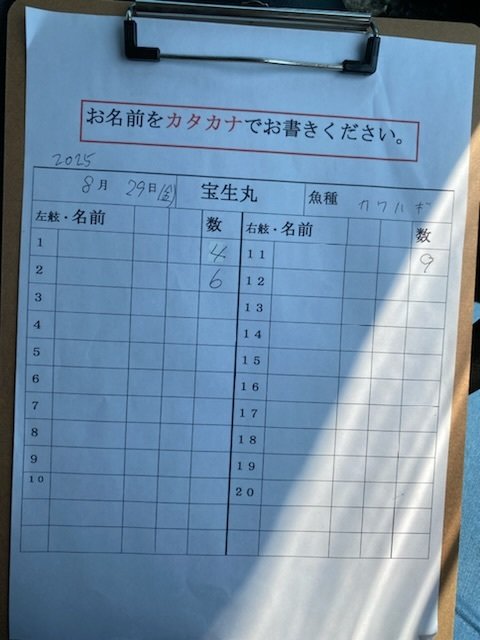 お名前をカタカナでお書きください。
2025
8月 29日(金) 宝生丸 魚種 カワハギ
左舷・名前 数 右舷・名前 数
1 4 11 9
2 6 12
3 13
4 14
5 15
6 16
7 17
8 18
9 19
10 20